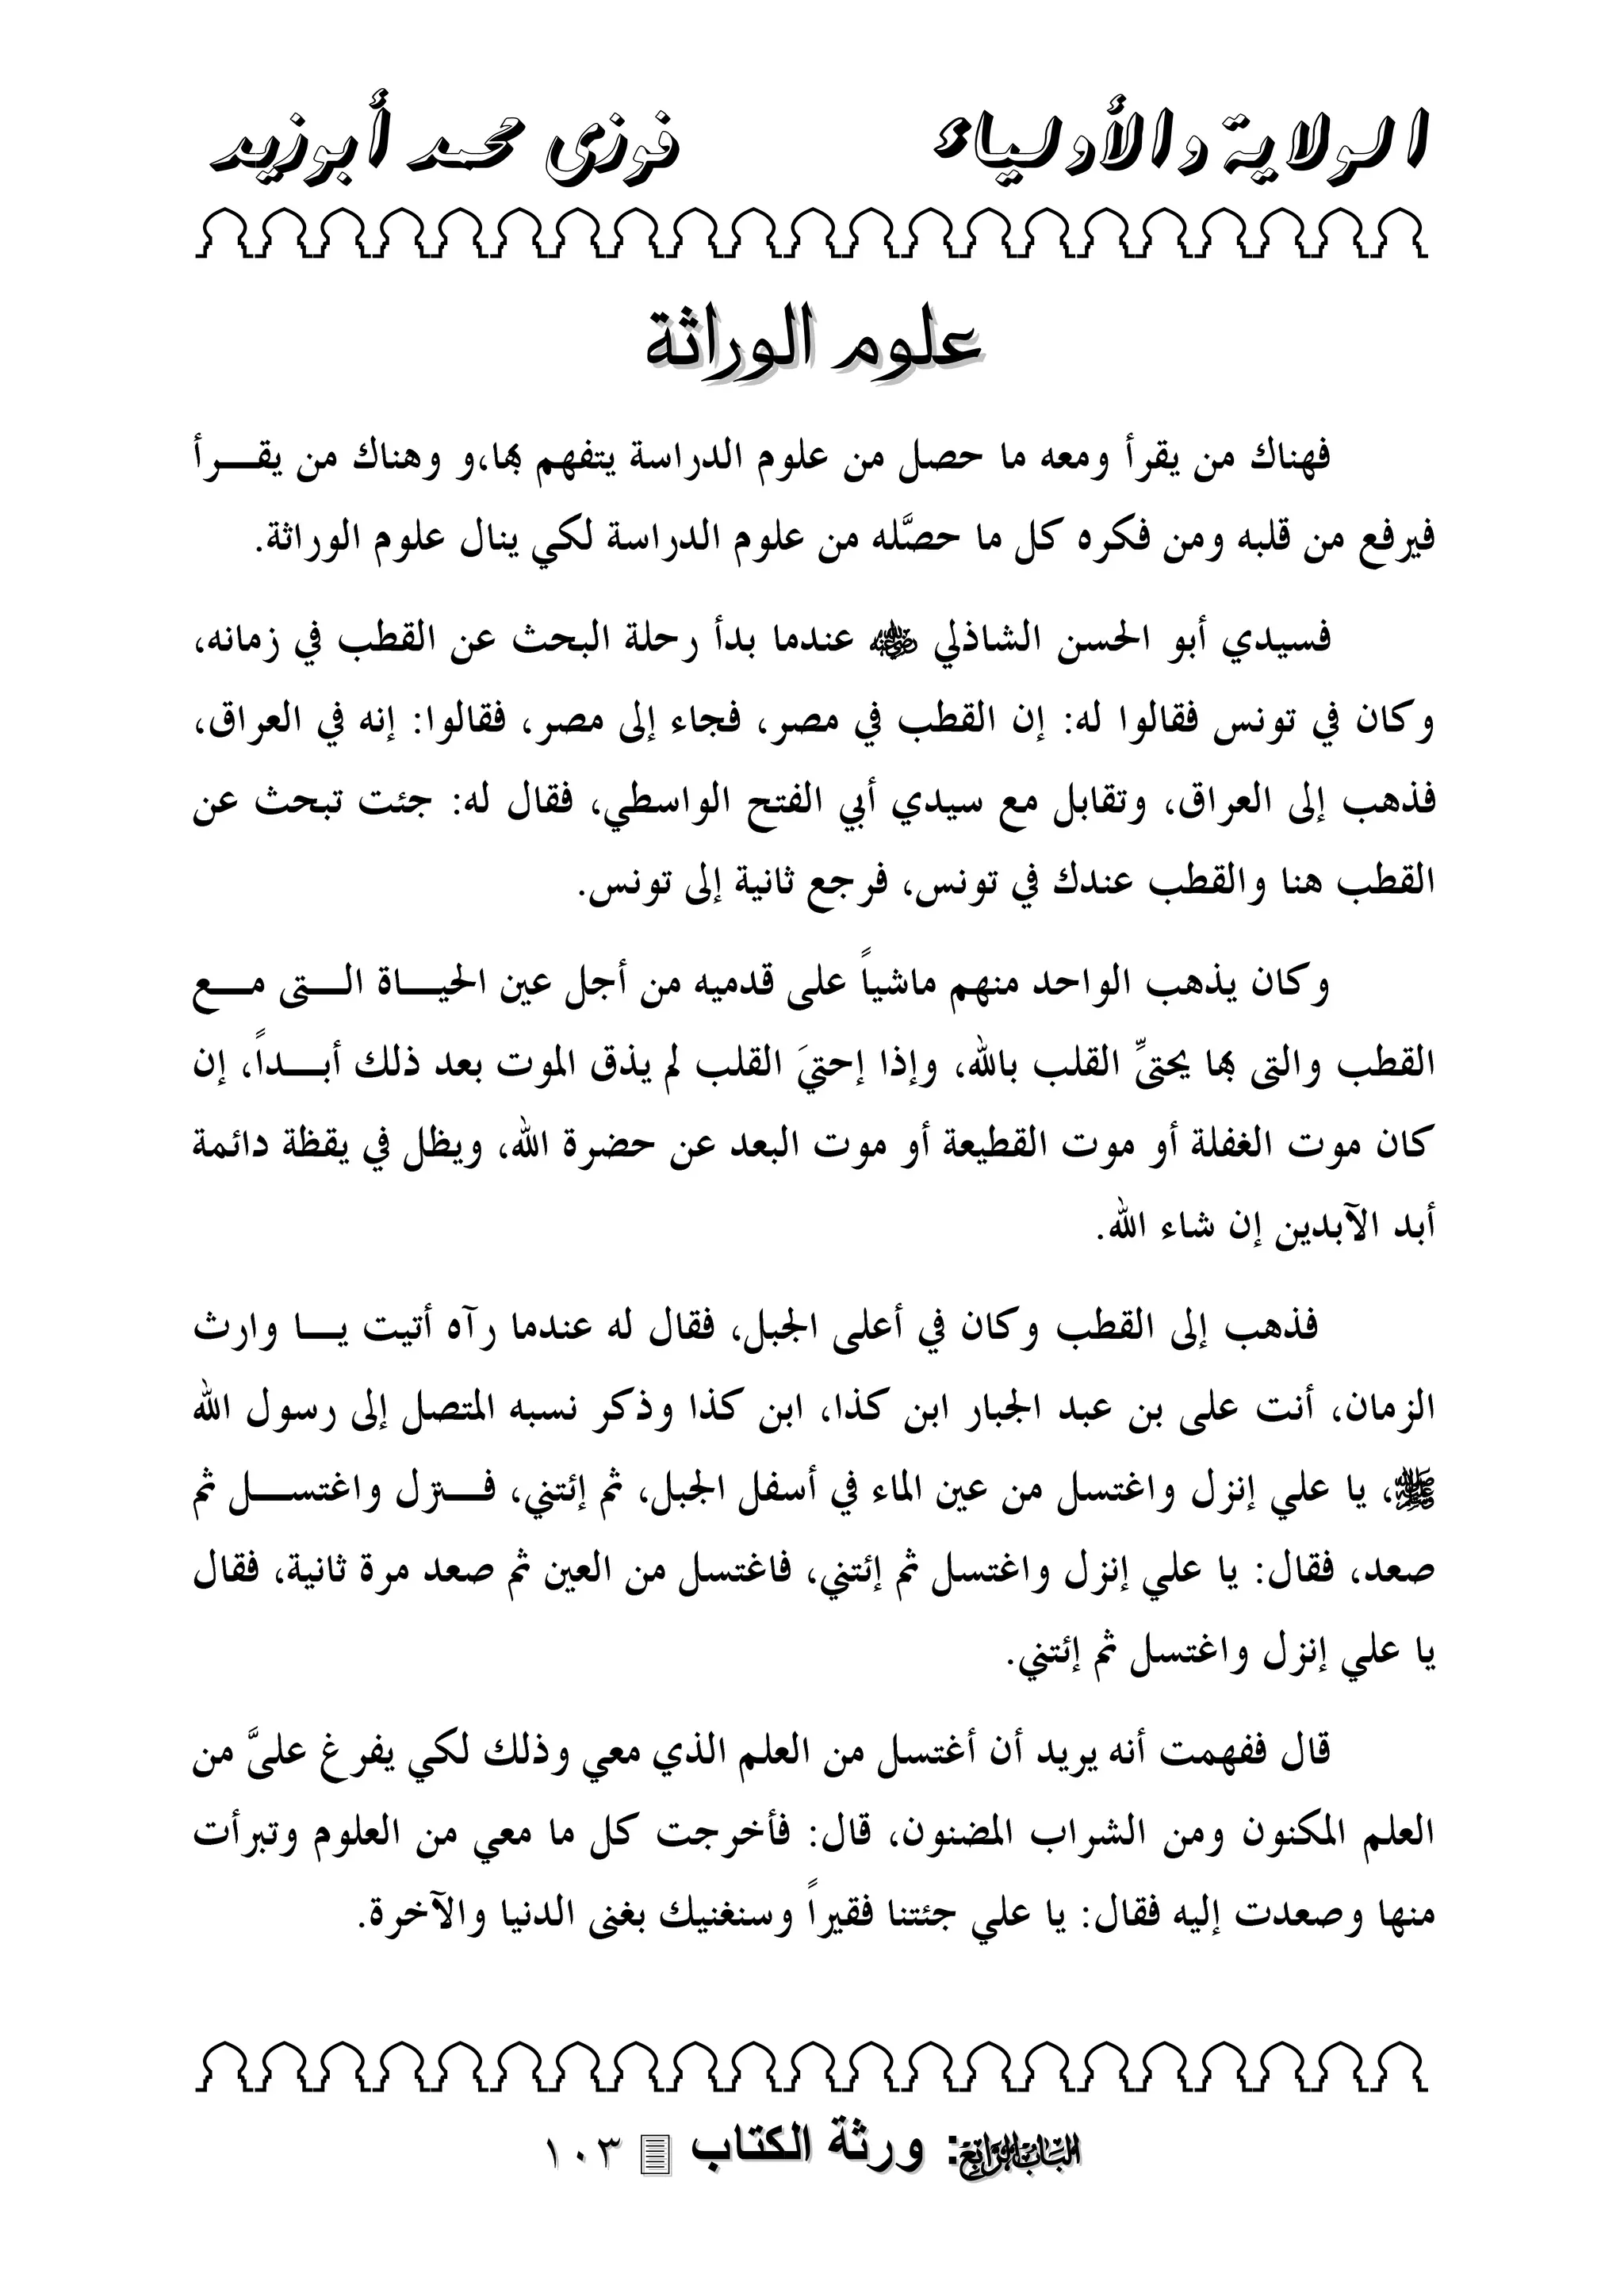 الولاية والأولياء فوزى محمد أبوزيد
علوم الوراثة
فهناك من يقرأ ومعه ما حصل من علوم الدراسة يتفهم بها،و وهناك من يقـــرأ
فيرفع من قلبه ومن فكره كل ما حصَّله من علوم الدراسة لكي ينال علوم الوراثة.
فسيدي أبو الحسن الشاذلي رضي الله عنه عندما بدأ رحلة البحث عن القطب في زمانه،
وكان في تونس فقالوا له: إن القطب في مصر، فجاء إلى مصر، فقالوا: إنه في العراق،
فذهب إلى العراق، وتقابل مع سيدي أبي الفتح الواسطي، فقال له: جئت تبحث عن
القطب هنا والقطب عندك في تونس، فرجع ثانية إلى تونس.
وكان يذهب الواحد منهم ماشياً على قدميه من أجل عين الحيـــاة الـــتى مـــع
القطب والتى بها يحتىِّ القلب بالله، وإذا إحتيَ القلب لم يذق الموت بعد ذلك أبـــداً، إن
كان موت الغفلة أو موت القطيعة أو موت البعد عن حضرة الله، ويظل في يقظة دائمة
أبد الآبدين إن شاء الله.
فذهب إلى القطب وكان في أعلى الجبل، فقال له عندما رآه أتيت يـــا وارث
الزمان، أنت على بن عبد الجبار ابن كذا، ابن كذا وذكر نسبه المتصل إلى رسول الله
ﷺ، يا علي إنزل واغتسل من عين الماء في أسفل الجبل، ثم إئتني، فـــنزل واغتســـل ثم
صعد، فقال: يا علي إنزل واغتسل ثم إئتني، فاغتسل من العين ثم صعد مرة ثانية، فقال
يا علي إنزل واغتسل ثم إئتني.
قال ففهمت أنه يريد أن أغتسل من العلم الذي معي وذلك لكي يفرغ علىَّ من
العلم المكنون ومن الشراب المضنون، قال: فأخرجت كل ما معي من العلوم وتبرأت
منها وصعدت إليه فقال: يا علي جئتنا فقيراً وسنغنيك بغنى الدنيا والآخرة.
الباب الرابع: ورثة الكتاب ١٠٣